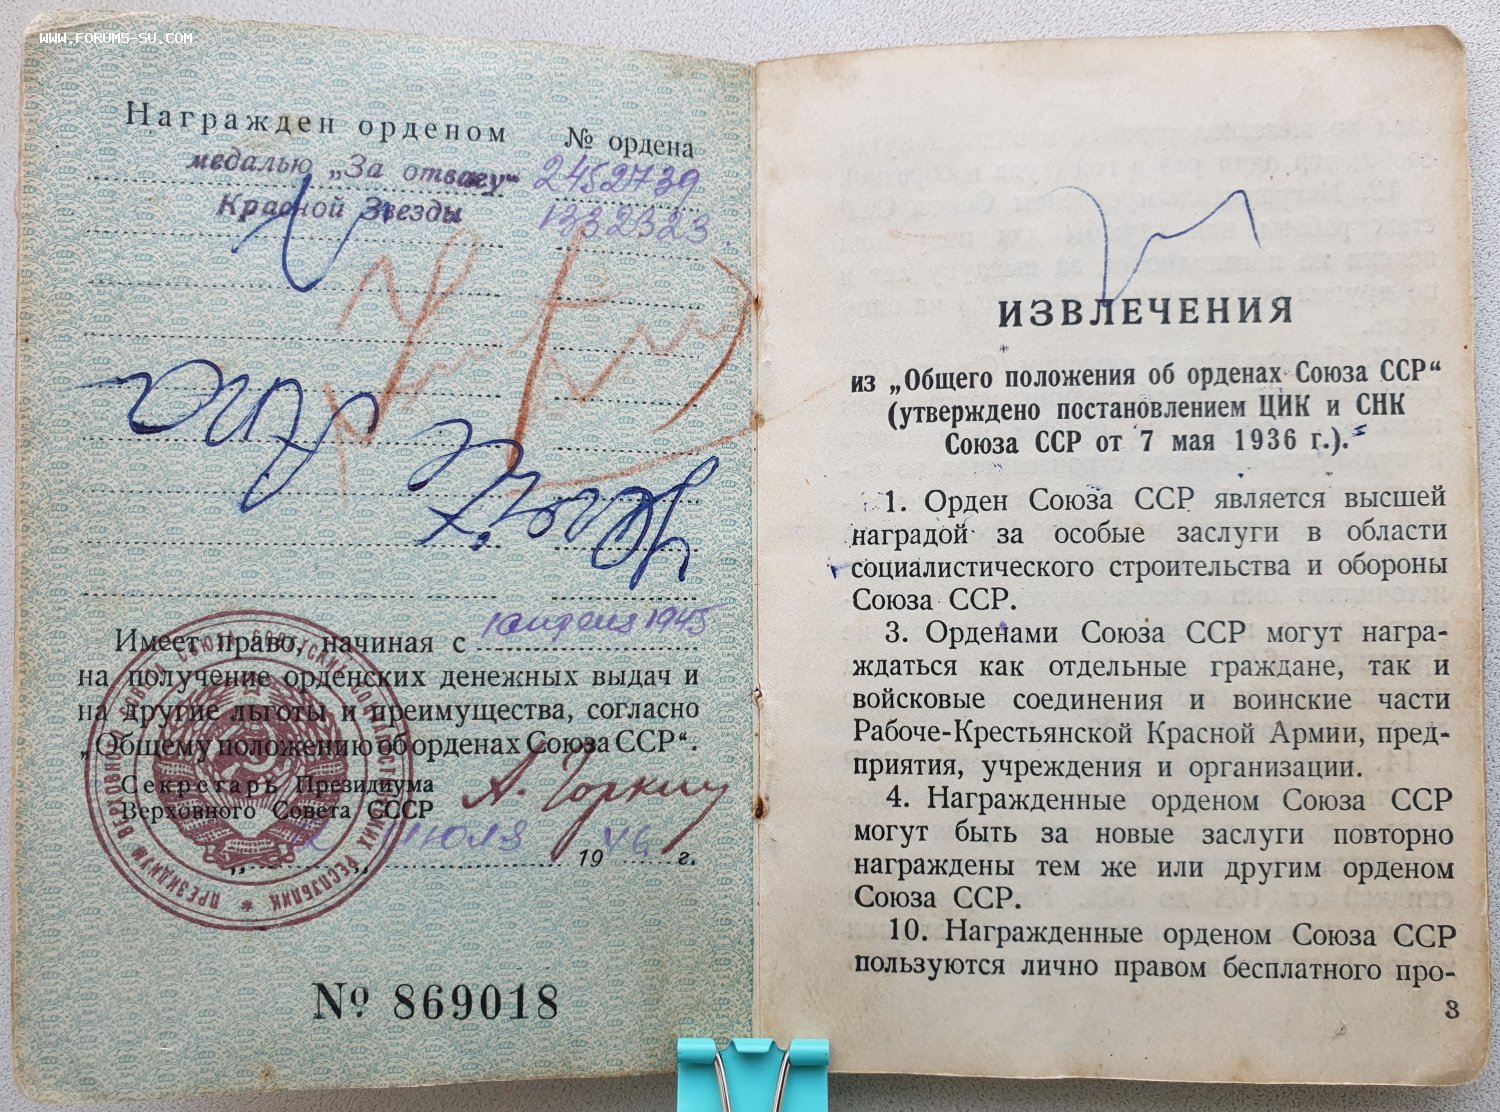 WWW.FORUMS-SU.COM
Награжден орденом № ордена
медалью „За отвагу“ 2452739
Красной Звезды 1332323.
Имеет право, начиная с 1 апреля 1945
на получение орденских денежных выдач и
на другие льготы и преимущества, согласно
„Общему положению об орденах Союза ССР“.
Секретарь Президиума
Верховного Совета СССР А. Горкин
июля 1946 г.
ПРЕЗИДИУМ ВЕРХОВНОГО СОВЕТА СОЮЗА СОВЕТСКИХ СОЦИАЛИСТИЧЕСКИХ РЕСПУБЛИК
№ 869018
ИЗВЛЕЧЕНИЯ
из „Общего положения об орденах Союза ССР“
(утверждено постановлением ЦИК и СНК
Союза ССР от 7 мая 1936 г.).
1. Орден Союза ССР является высшей
наградой за особые заслуги в области
социалистического строительства и обороны
Союза ССР.
3. Орденами Союза ССР могут награ-
ждаться как отдельные граждане, так и
войсковые соединения и воинские части
Рабоче-Крестьянской Красной Армии, пред-
приятия, учреждения и организации.
4. Награжденные орденом Союза ССР
могут быть за новые заслуги повторно
награждены тем же или другим орденом
Союза ССР.
10. Награжденные орденом Союза ССР
пользуются лично правом бесплатного про-
3